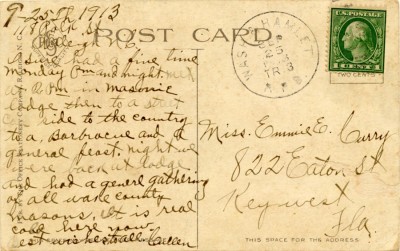 9-25th 1913
POST CARD
I sure had a fine time
Monday Pm and night. met
at 2 Pm in masonic
lodge then to a street
car side to the country
to a Barbracue and a
general feast. night we
were back at lodge
and had a genere gathering
of all wake county
masons. it is real
cool here now.
best wishes to all
WASH. & HAMLET
SEP 25
1913
TR
U.S. POSTAGE
1 CENT 1
Miss. Emmie E. Curry
822 Eaton St
Key west
Fla
THIS SPACE FOR THE ADDRESS.